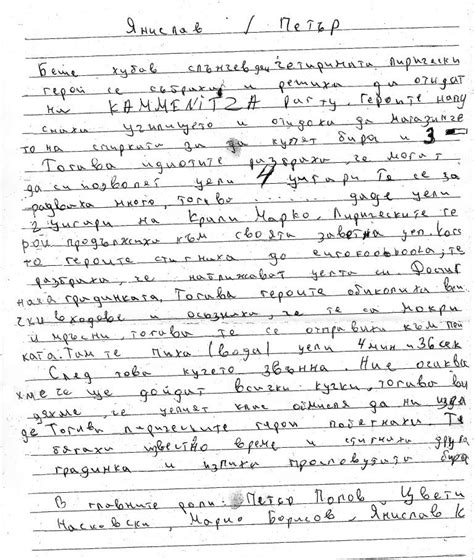 Янислав / Петър
Беше хубав слънчев ден четиримата лирически
герой се събраха и решиха да отидат
на KAMMENITZA парту. Героите напу
снаха училището и отидоха до магазинче
то на спирката за да купят бира и 3
Тогава идиотите разбраха, че могат
да си позволят цели 4 цигари Те се за
радваха много, тогава ..... даде цели
2 цигари на Крали Марко. Лирическите ге
рои продължиха към своята заветна цел. Кога
то героите стигнаха до еврофутбола, те
разбраха, че наближават целта си. Достиг
наха градинката. Тогава героите обиколиха вси
чки входове и осъзнаха, че те са мокри
и мръсни, тогава те се отправиха към пей
ката. Там те пиха (вода) цели 4 мин и 36 сек
След това кучето звънна. Ние очаква
хме че ще дойдат всички кучки, тогава ви
дяхме, че целият клас
де Тогава лирическите герои побегнаха. Те
бягаха известно време и стигнаха друга
градинка и изпиха прословутата бира
В главните роли: Петър Попов, Цвети
Насковски, Марио Борисов, Янислав К